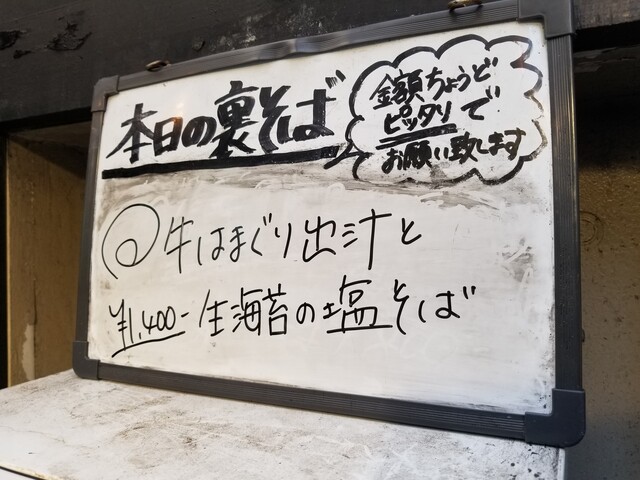 本日の裏そば
金額ちょうど
ピッタリで
お願い致します
牛はまぐり出汁と
¥1,400- 生海苔の塩そば